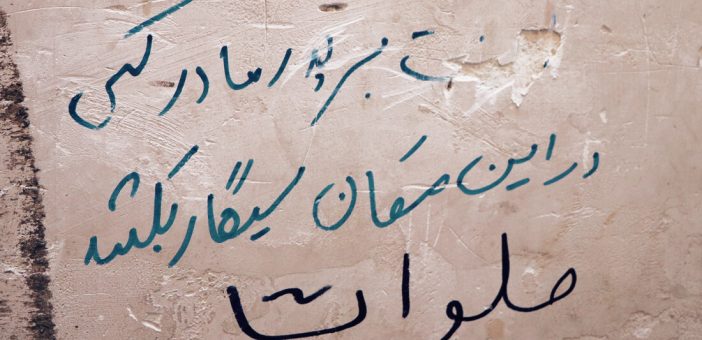 بر پدر مادر کسی
در این مکان سیگار بکشد
صلوات